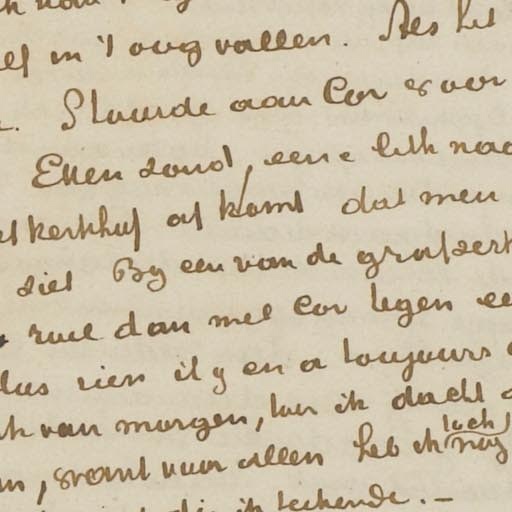 elf in 't oog vallen. Als het
Stuurde aan Cor & voor
Etten zond, eene lith naa
et kerkhof af komt dat men
ziet By een van de grafzerk
ruil dan met Cor tegen ee
lus rien il y en a toujours
ik van morgen, toen ik dacht
n, want voor allen heb ik toch nog
die ik teekende. —